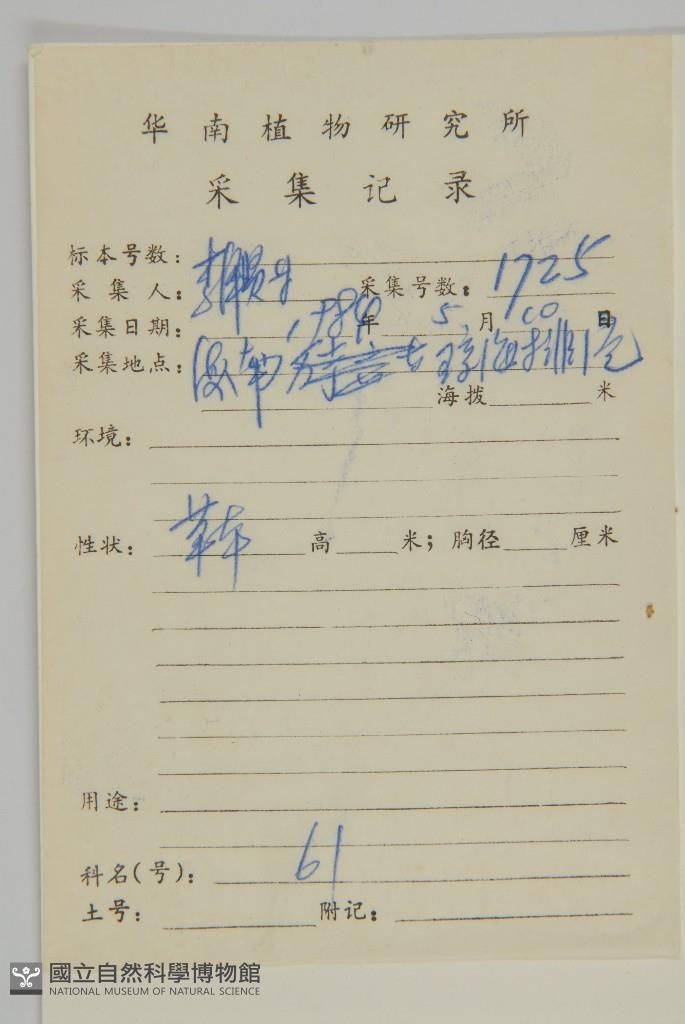 华南植物研究所
采集记录
标本号数:
采集人: 采集号数: 1725
采集日期: 年 5 月 10 日
采集地点: 海南 琼海
海拨 米
环境:
性状: 草本 高 米; 胸径 厘米
用途:
科名(号): 61
土号: 附记:
國立自然科學博物館
NATIONAL MUSEUM OF NATURAL SCIENCE